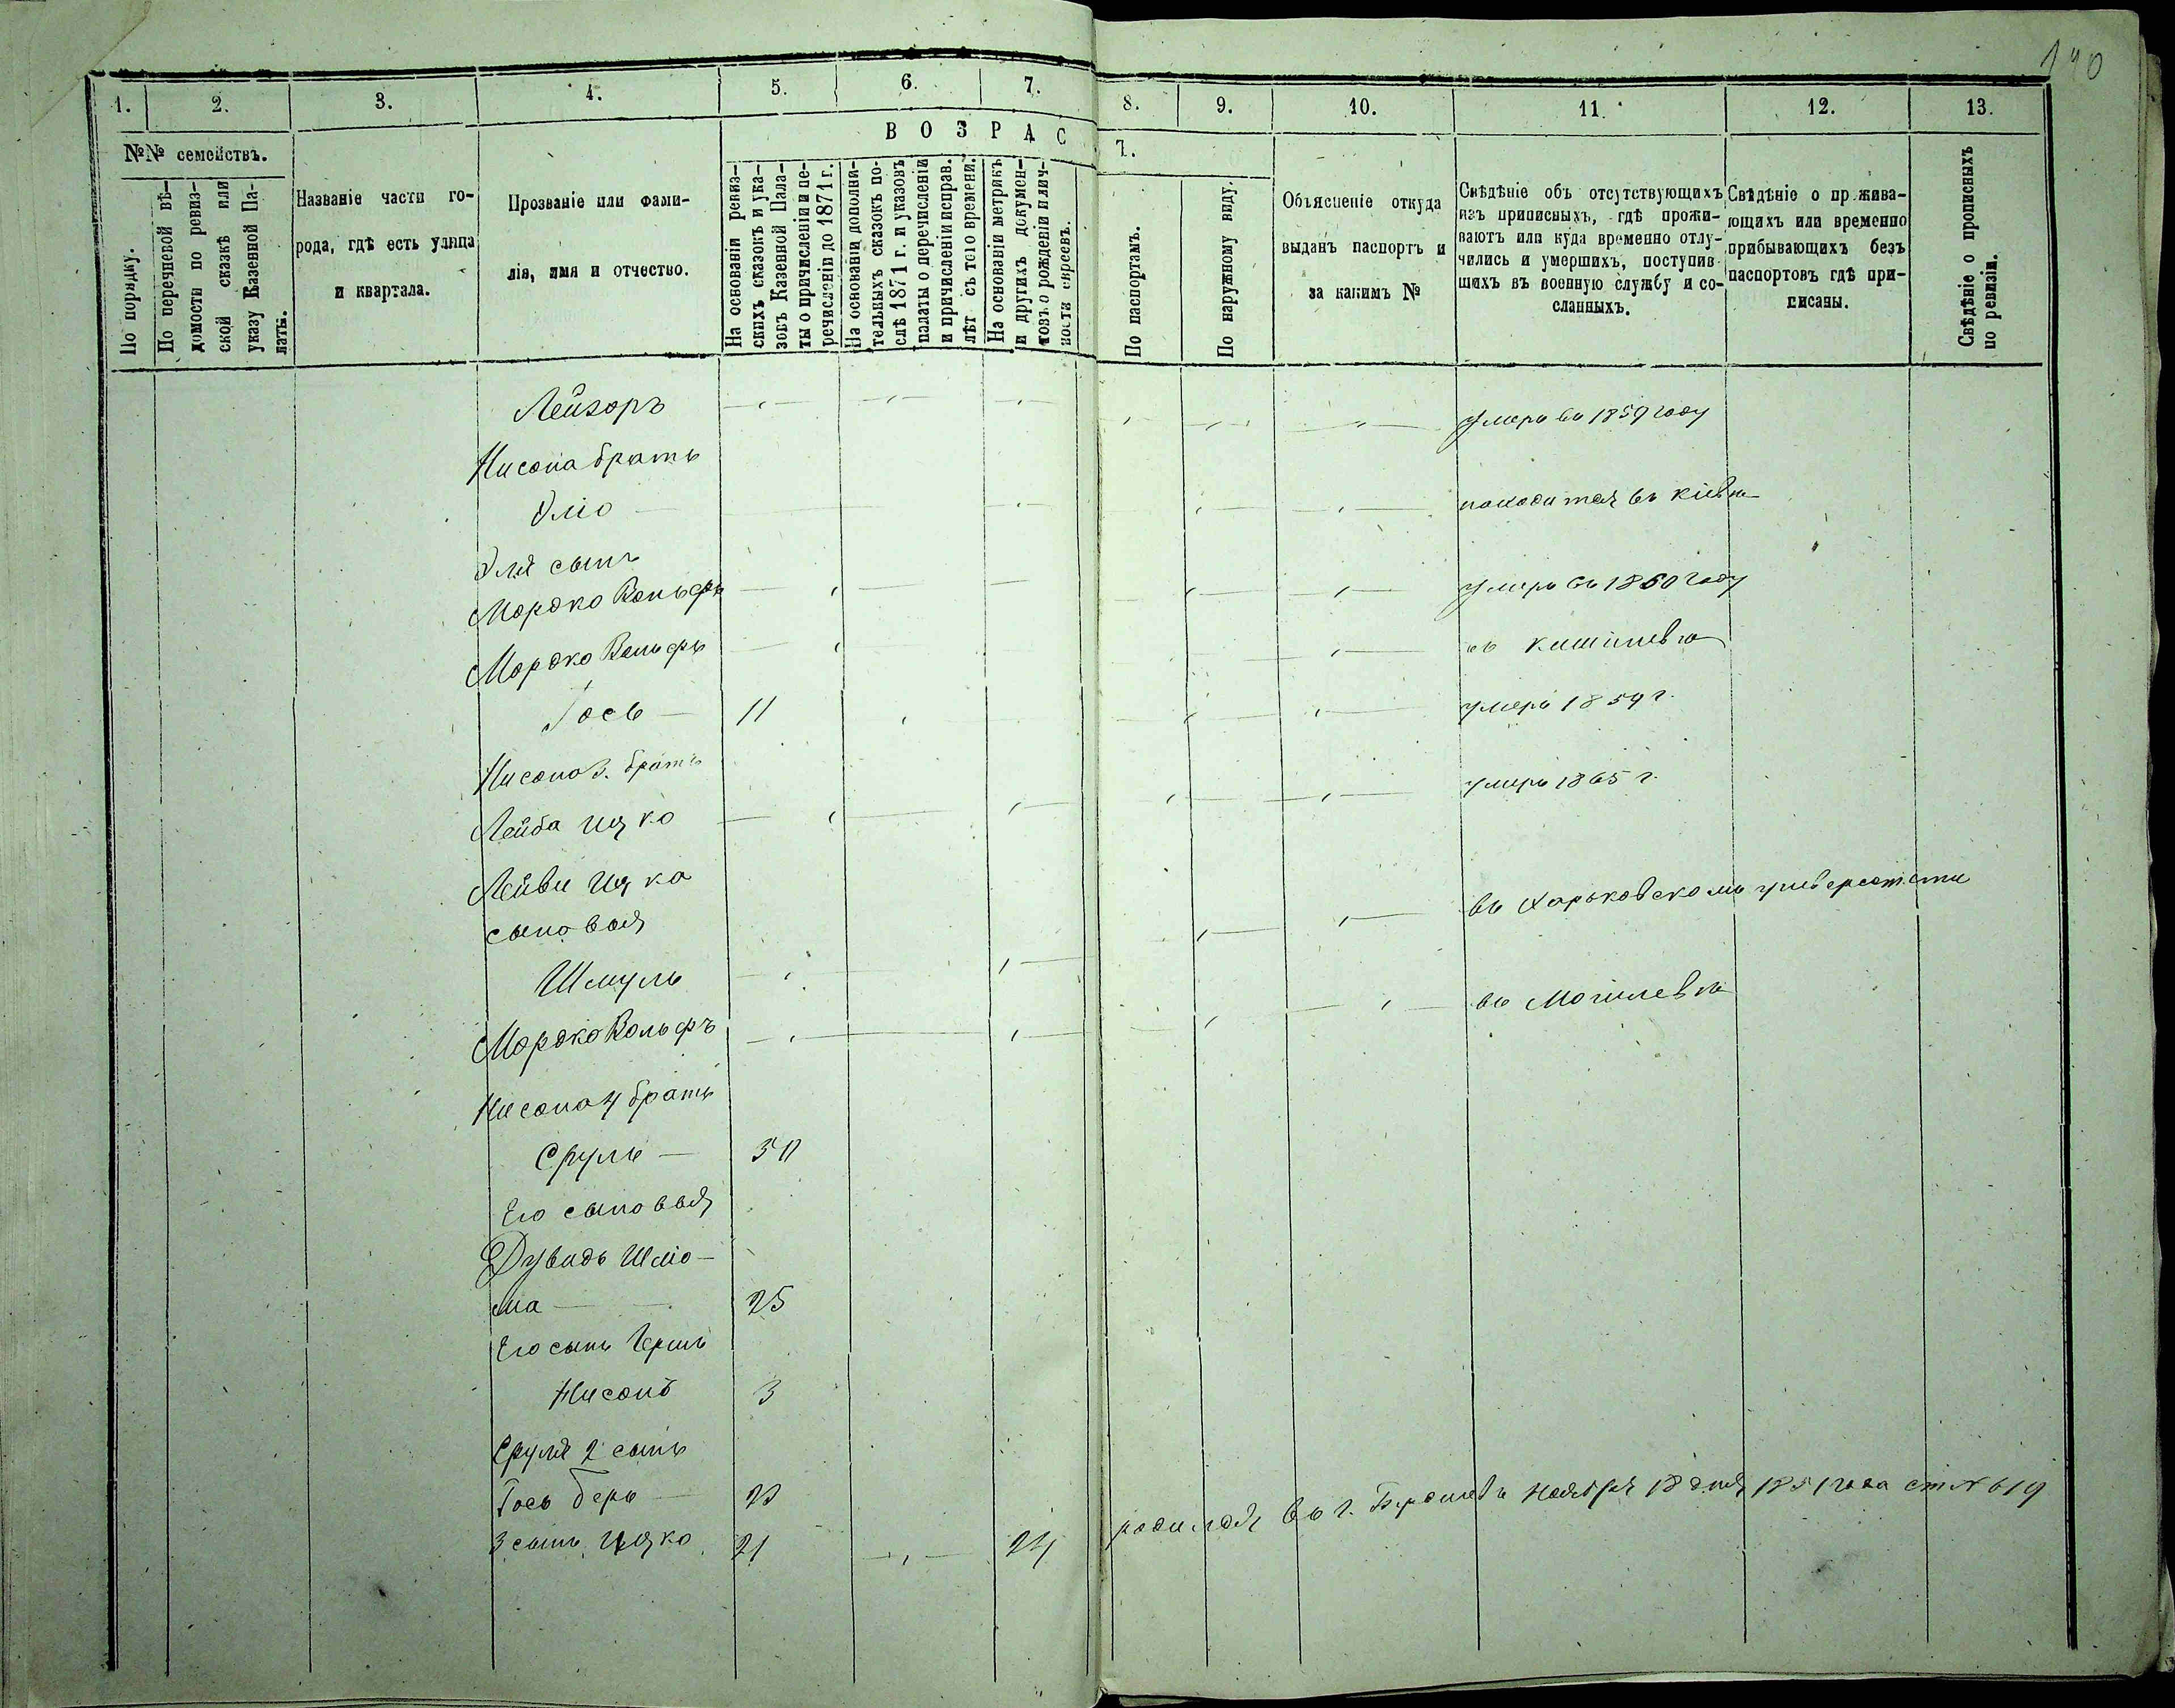 140
1. 2. 3. 4. 5. 6. 7. 8. 9. 10. 11. 12. 13.
№№ семействъ.
По порядку.
По перечневой вѣ-
домости по ревиз-
ской сказкѣ или
указу Казенной Па-
латы.
Названіе части го-
рода, гдѣ есть улица
и квартала.
Прозваніе или фами-
лія, имя и отчество.
ВОЗРАС
Т.
На основаніи ревиз-
скихъ сказокъ и ука-
зовъ Казенной Пала-
ты о причисленіи и пе-
речисленіи до 1871 г.
На основаніи дополни-
тельныхъ сказокъ по-
слѣ 1871 г. и указовъ
палаты о перечисленіи
и причисленіи исправ.
лѣт съ того времени.
На основаніи метрикъ
и другихъ докумен-
товъ о рожденіи и лич-
ности евреевъ.
По паспортамъ.
По наружному виду.
Объясненіе откуда
выданъ паспортъ и
за какимъ №
Свѣдѣніе объ отсутствующихъ
изъ приписныхъ, гдѣ прожи-
ваютъ или куда временно отлу-
чились и умершихъ, поступив-
шихъ въ военную службу и со-
сланныхъ.
Свѣдѣніе о прожива-
ющихъ или временно
прибывающихъ безъ
паспортовъ гдѣ при-
писаны.
Свѣдѣніе о прописныхъ
по ревизіи.
Лейзоръ умеръ въ 1859 году
Нисона братъ
Эліо находится въ Кіевѣ
Эля сынъ
Мордко Вольфъ умеръ въ 1860 году
Мордко Вольфъ въ Кишиневѣ
Іось 11 умеръ 1859 г.
Нисона 3. братъ
Лейба Ицко умеръ 1865 г.
Лейби Ицка
сыновья въ Харьковскомъ университетѣ
Шмуль
Мордко Вольфъ въ Могилевѣ
Нисона 4 братъ
Сруль 50
Его сыновья
Дувидъ Шліо-
ма 25
Его сынъ Гершъ
Нисонъ 3
Сруля 2 сынъ
Іось Беръ 23
3 сынъ Ицко 21 24 родился въ г. Ноября 18 дня 1851 года ст № 619